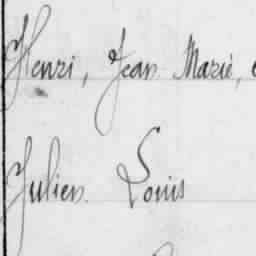 Henri, Jean Marie,
Julien Louis